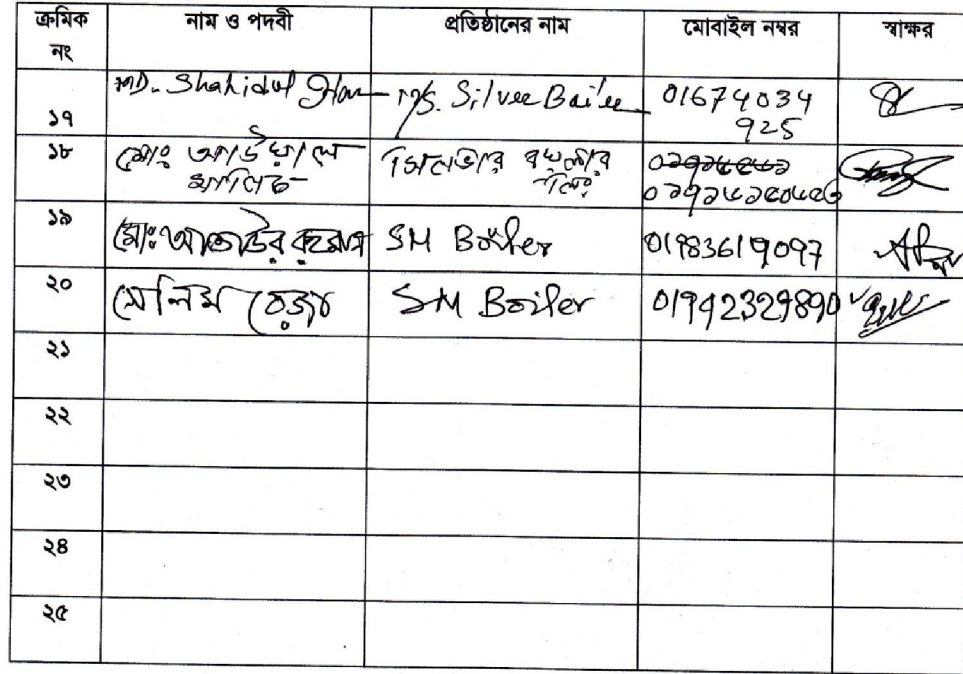 ক্রমিক নং	নাম ও পদবী	প্রতিষ্ঠানের নাম	মোবাইল নম্বর	স্বাক্ষর
১৭	MD. Shahidul	M/S. Silvee Bailee	01674034
925
১৮	মোঃ	সিলভার বয়লার
১৯	মোঃ আতাউর রহমান	SM Boiler	01983619097
২০	সেলিম রেজা	SM Boiler	01942329890
২১
২২
২৩
২৪
২৫